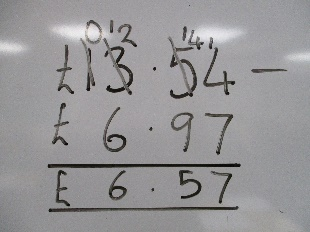 0 12 14 1
£13.54 -
£ 6.97
£ 6.57